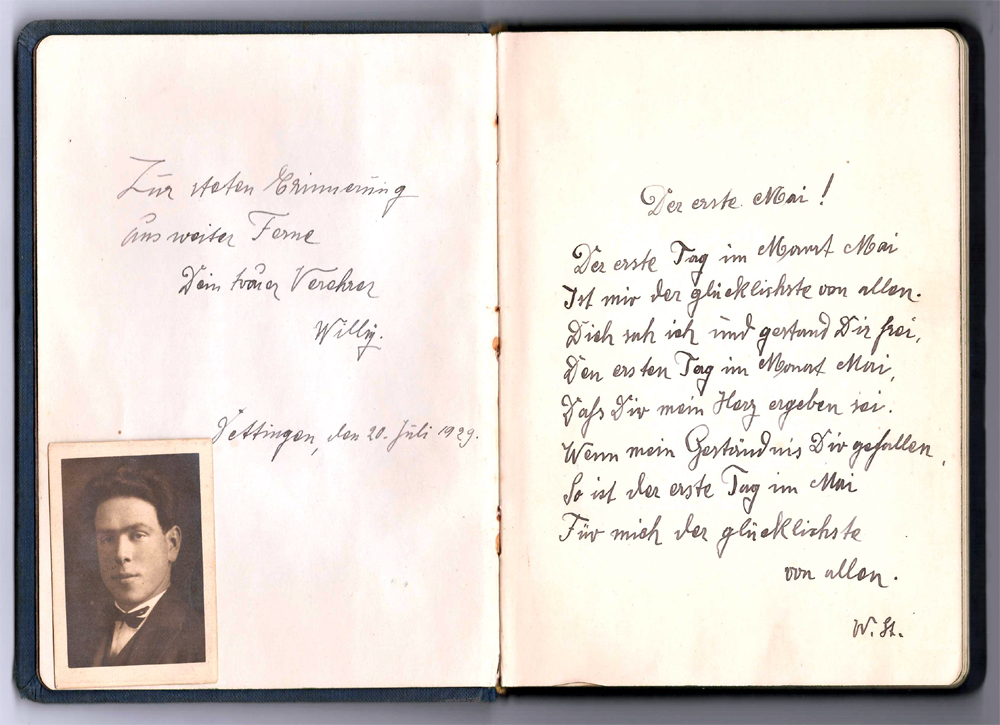 Zur steten Erinnerung
Aus weiter Ferne
Dein treuer Verehrer
Willy.
Dettingen, den 20. Juli 1929.
Der erste Mai!
Der erste Tag im Monat Mai
Ist mir der glücklichste von allen.
Dich sah ich und gestand Dir frei,
Den ersten Tag im Monat Mai,
Daſs Dir mein Herz ergeben sei.
Wenn mein Geständnis Dir gefallen,
So ist der erste Tag im Mai
Für mich der glücklichste
von allen.
W. St.